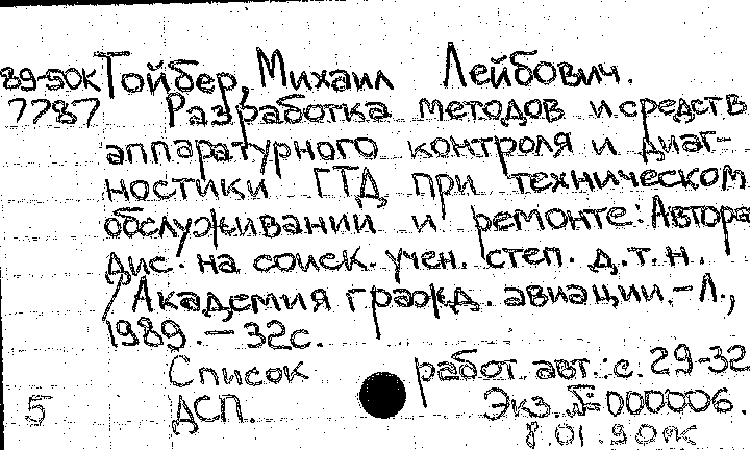 89-50К Тойбер, Михаил Лейбович.
7787 Разработка методов и средств
аппаратурного контроля и диаг-
ностики ГТД при техническом
обслуживании и ремонте: Автора
дис. на соиск. учен. степ. д.т.н.
/Академия гражд. авиации.-Л.,
1989.-32с.
Список работ авт.: с. 29-32
5 ДСП. Экз.№000006.
8.01.90